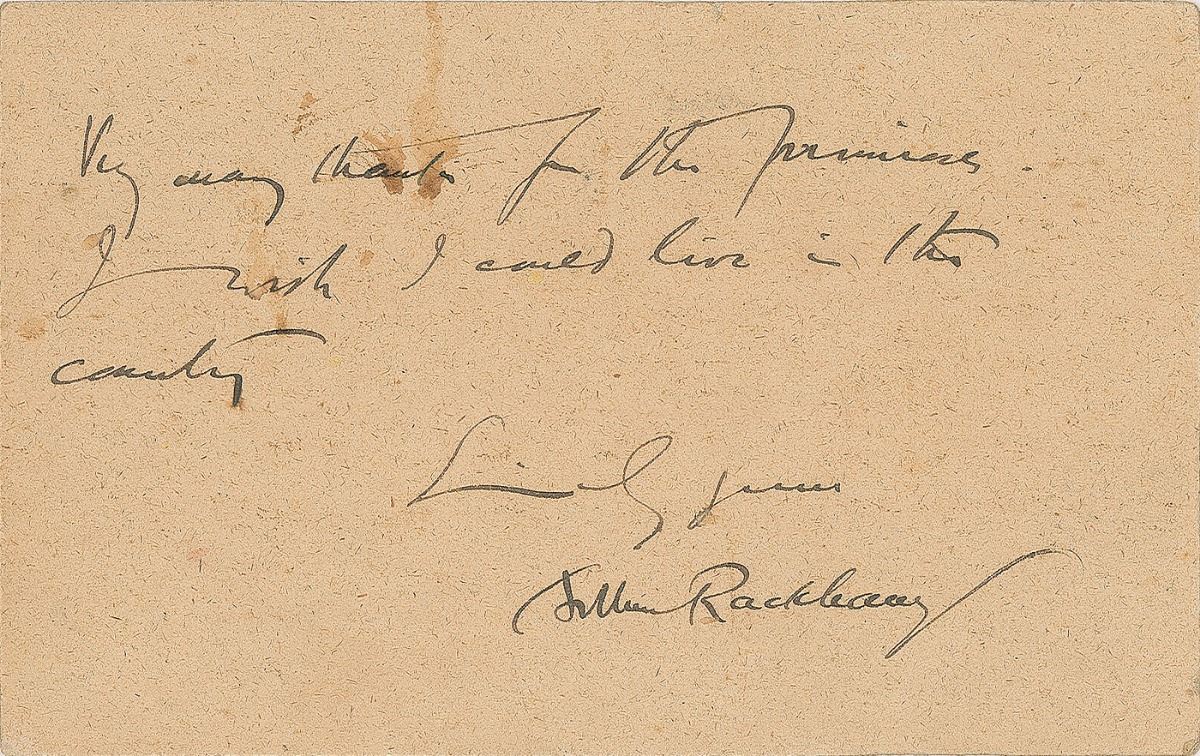 Very many thanks for the primroses.
I wish I could live in the
country
Sincerely yours
Arthur Rackham